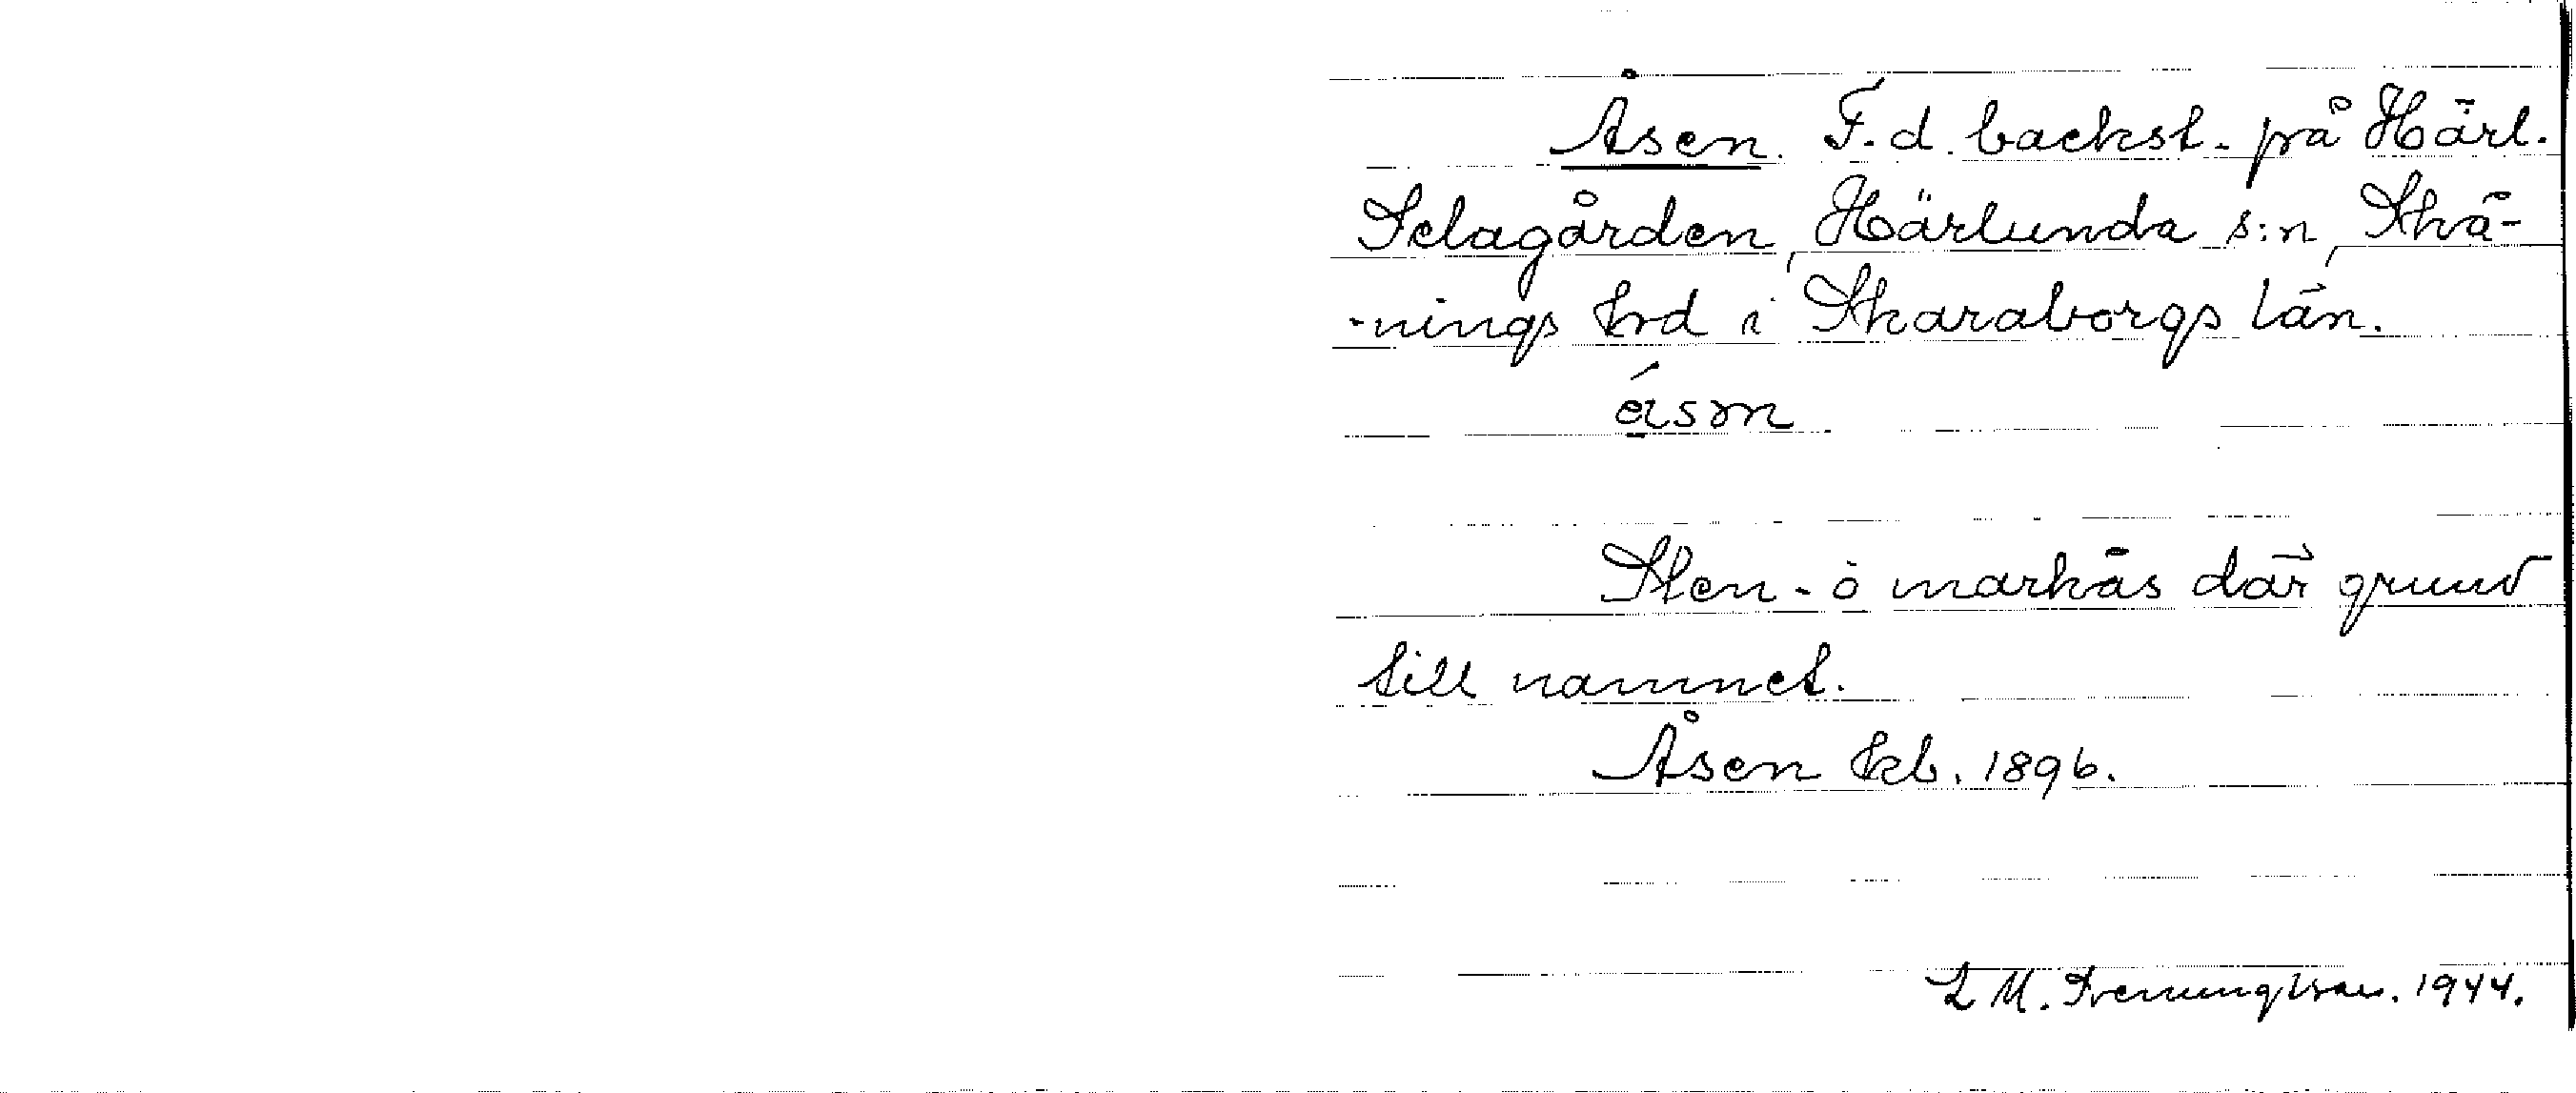 Åsen. F.d. backst. på Härl.
Selagården, Härlunda s:n, Skä-
-nings hrd i Skaraborgs län.
ásn
Sten- o markås där grund
till namnet.
Åsen kb. 1896.
L M. Svenungsson. 1944.